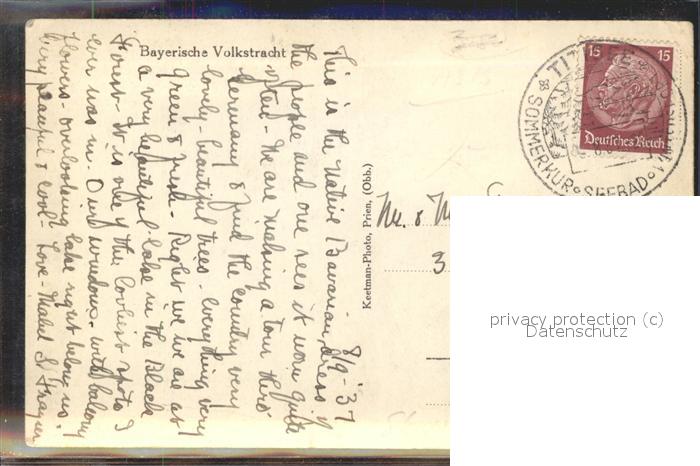 Bayerische Volkstracht
8/9-'37
This is the Native Bavarian dress of
the people and one sees it worn quite
often - We are making a tour thro
Germany & find the country very
lovely - beautiful trees - everything very
green & fresh - Right we are at
a very beautiful lake in the Black
Forest - It is one of the loveliest spots I
ever was in. Our windows - with balcony
flowers - overlooking lake right below us.
Very peaceful & cool - Love - Mabel
Keetman-Photo, Prien, (Obb.)
Mr. &
3
15 15
Deutsches Reich
SOMMERKUR SEEBAD
privacy protection (c)
Datenschutz